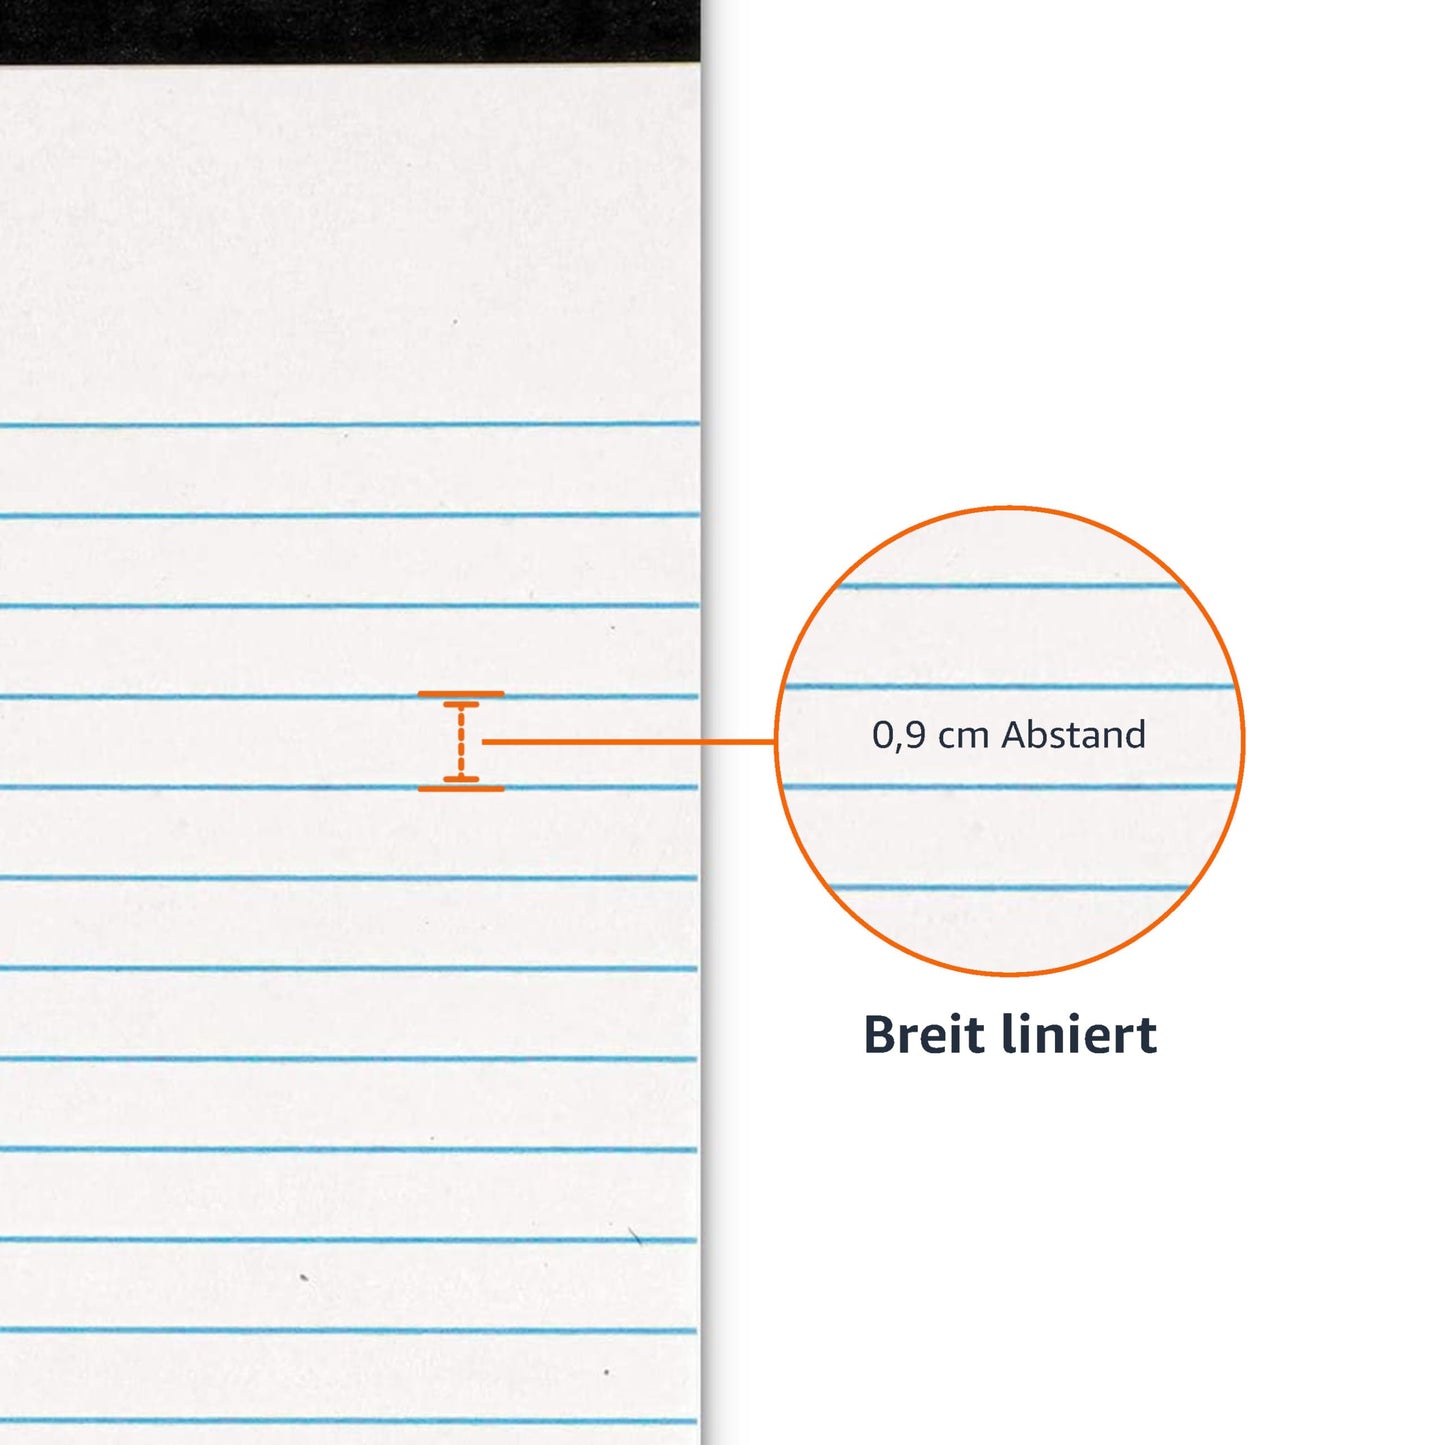 0,9 cm Abstand
Breit liniert